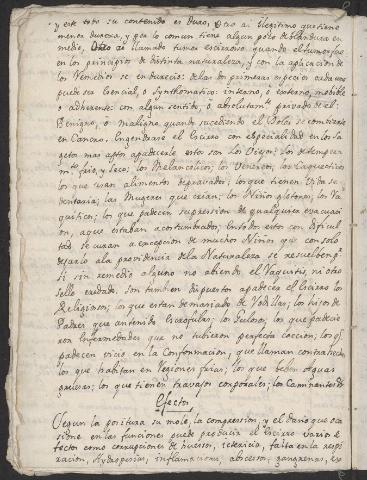 y este todo su contenido es Duro, otro ai ilegitimo que tiene
menos dureza, y por lo comun tiene algun poco de blandura en
medio, Otro ai llamado tumor escirroso quando el tumor fue
en los principios de distinta naturaleza, y con la aplicacion de
los Remedios se endurecio: de las dos primeras especies cada uno
puede ser Esencial, o Synthomatico: interno, o externo, mobible
o adherente: con algun sentido, o absolutam.te privado de el:
Benigno, o Maligno, quando sucediendo el Dolor se convierte
en Cancro. Engendrase el Escirro con especialidad en los su
getos mas aptos a padecerle estos son los Viejos; los de temperam
m.to frio, y seco; los Melancolicos; los Venereos; los Caquecticos
los que usan alimentos depravados; los que tienen vida se
dentaria; las Mugeres que crian; los Niños glotones; los Ra
quiticos; los que padecen supresion de qualquiera evacua
ion, a que estaban acostumbrados; en todos estos con dificul
tad se curan a excepcion de muchos Niños que con solo
dejarlo a la providencia de la Naturaleza se resuelben p.r
si sin remedio alguno no abiendo el Raquitis, ni otro
sello eredado. son tambien dispuestos a padecer el Escirro los
Religiosos; los que estan demasiado de Rodillas; los hijos de
Padres que an tenido Escrofulas; los Gulosos; los que padecie
ron Enfermedades que no tubieron perfecta coccion; los q.e
padecen vicio en la Conformacion, que llaman contrahechos
los que habitan en Regiones frias; los que beben Aguas
gruesas; los que tienen trabajos corporales; los Caminantes &.
Efectos
Segun la positura su mole, la compression, y el daño que oca
sione en las funciones puede producir el Escirro varios e
fectos como corrupciones de huesos, ictericia, falta en la respi
racion, Hydropesias, inflamaciones, abscesos, gangrenas,